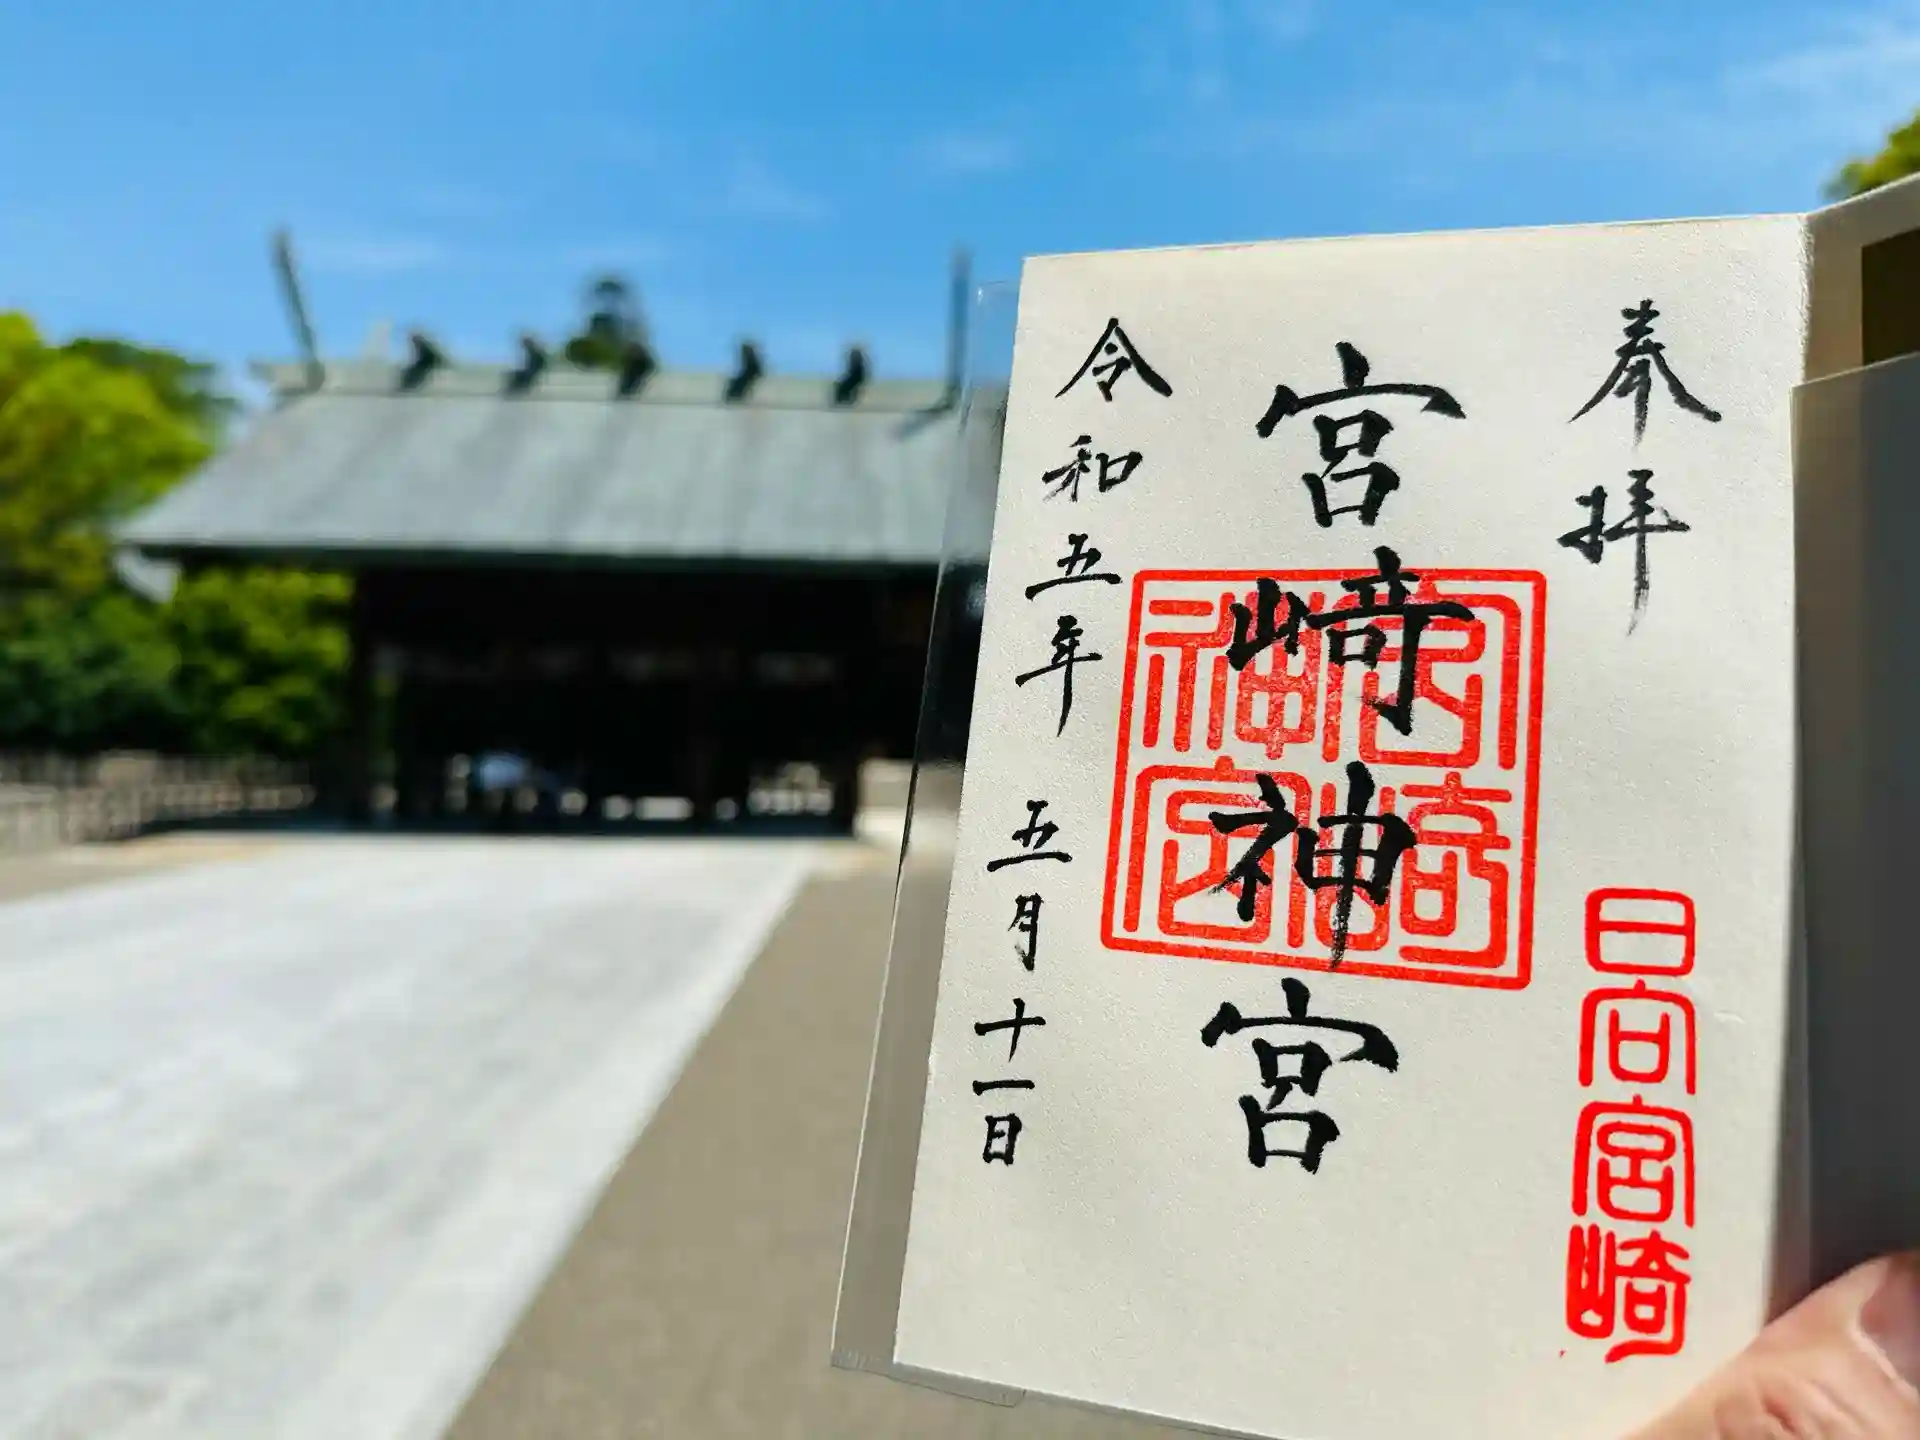 奉拝
日向宮﨑
宮﨑神宮
宮崎神宮
令和五年 五月十一日